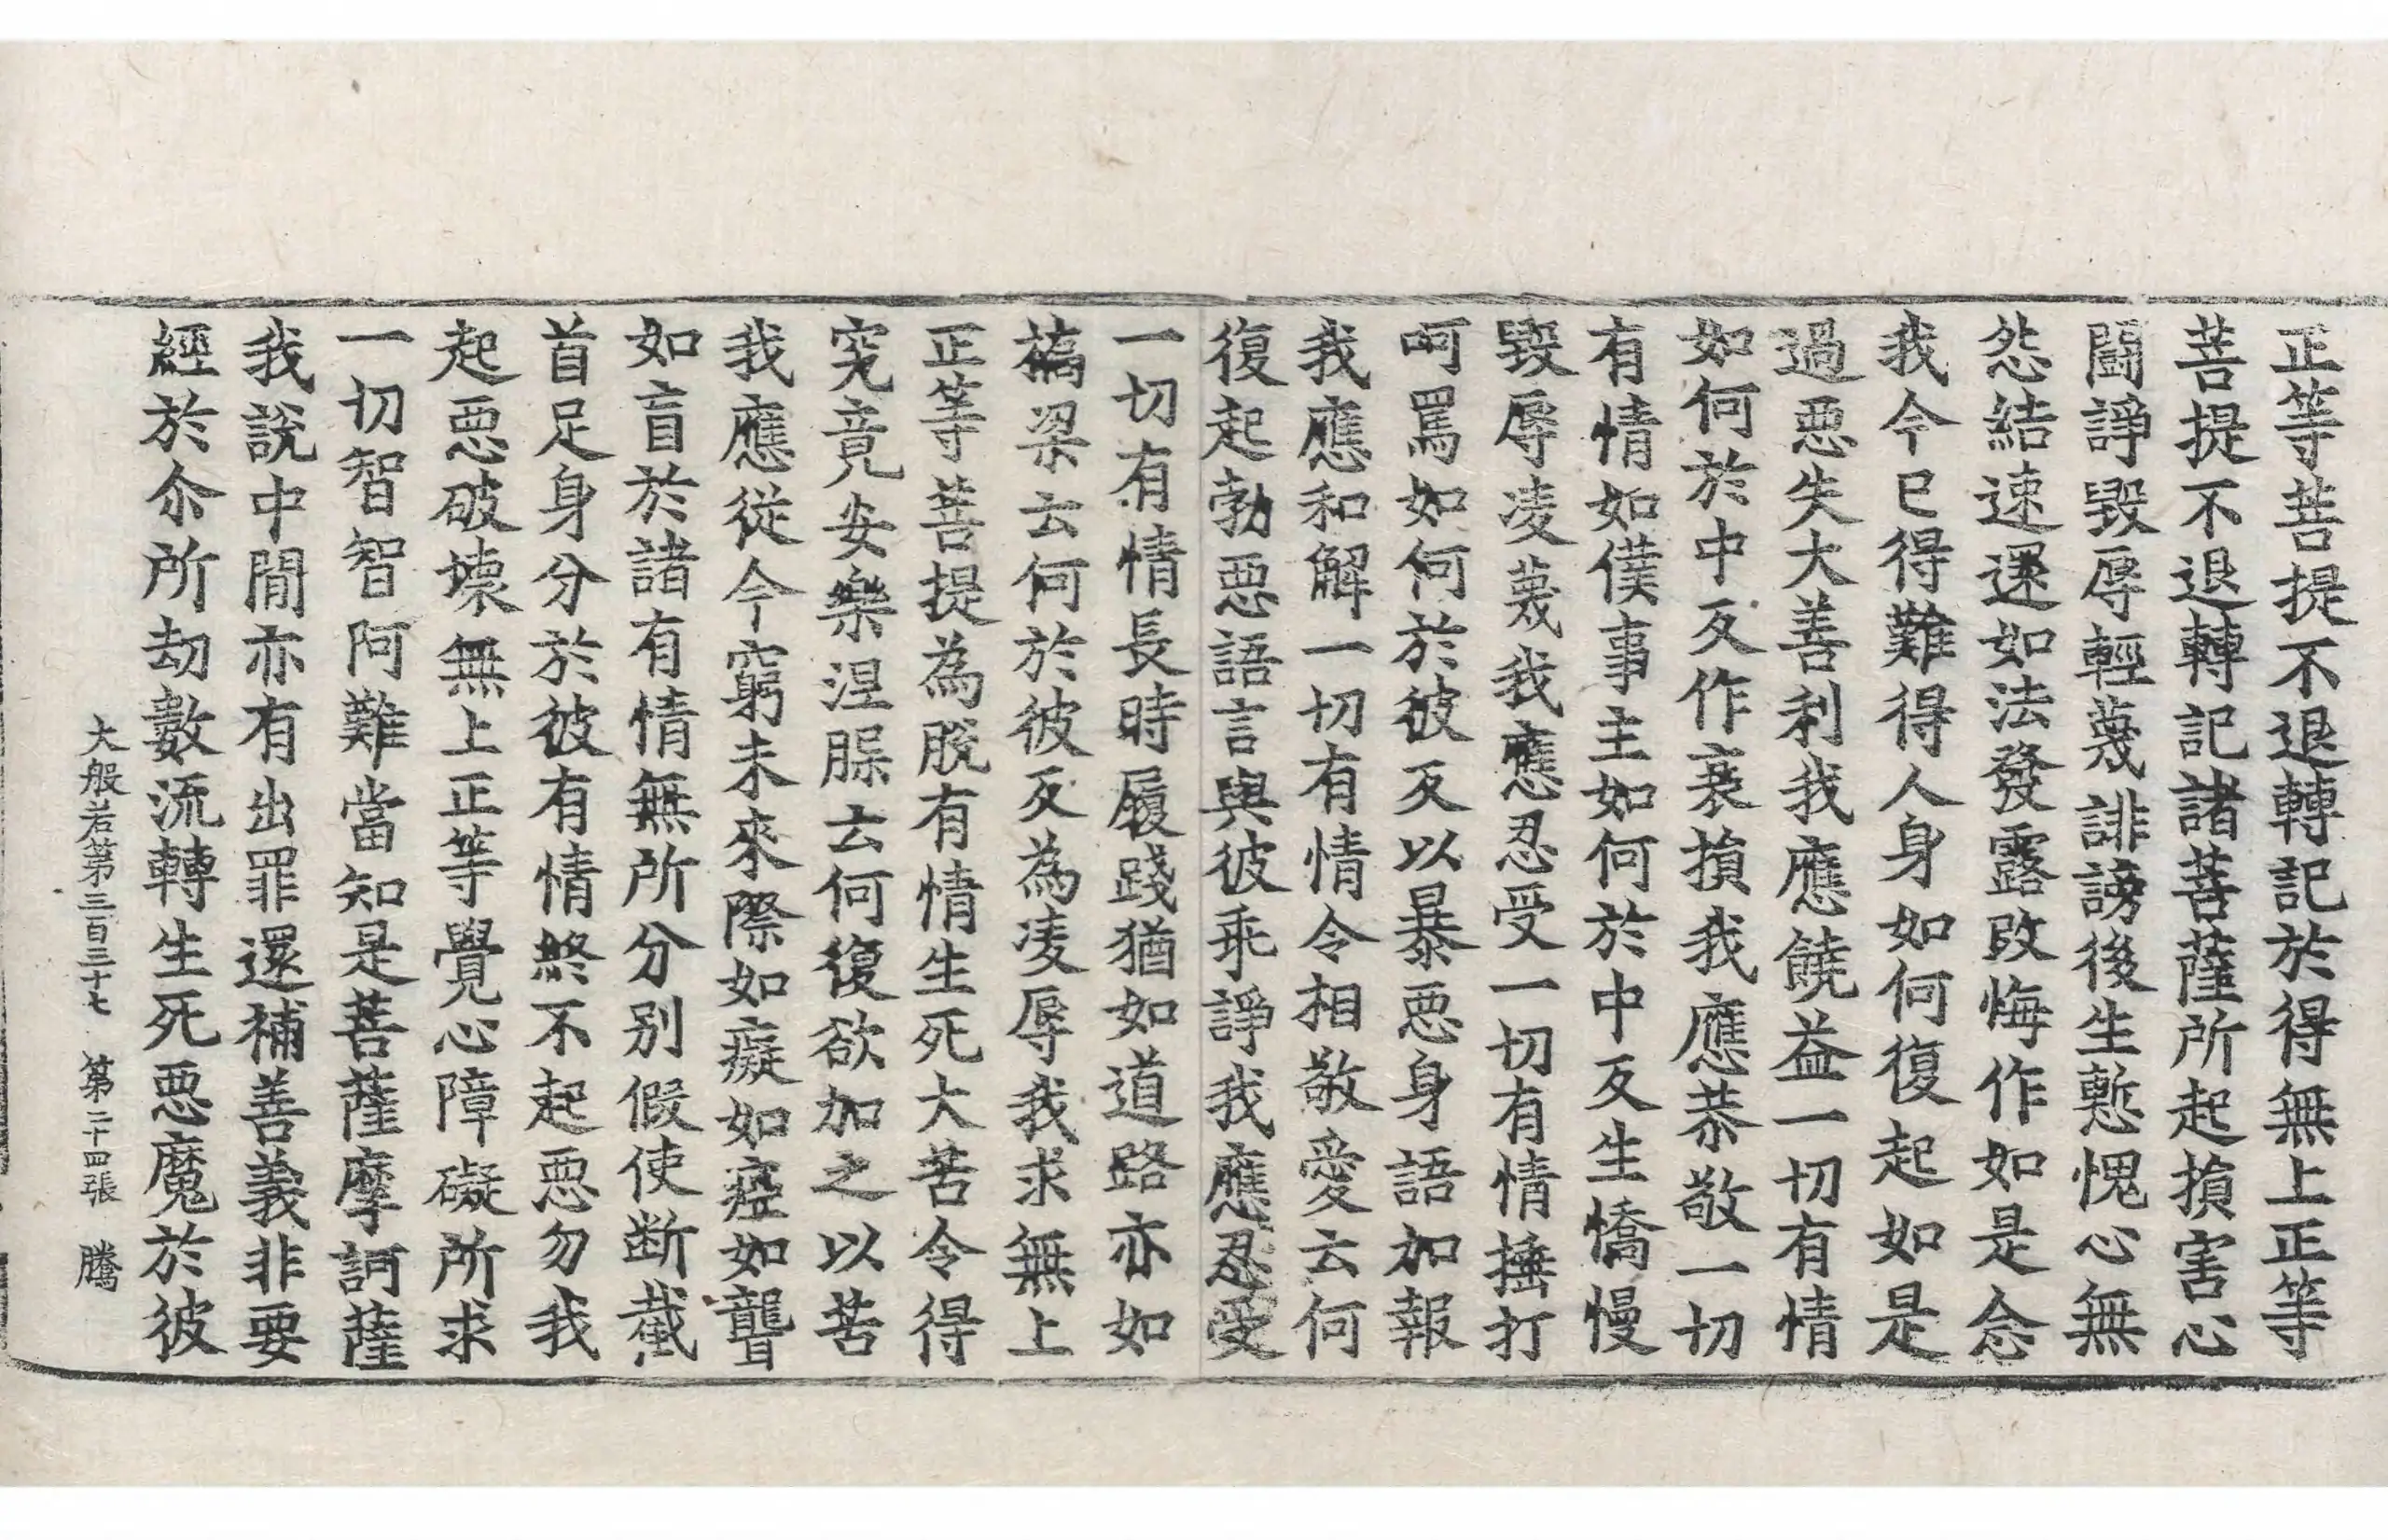 正等菩提不退轉記於得無上正等
菩提不退轉記諸菩薩所起損害心
鬪諍毀辱輕蔑誹謗後生慙愧心無
怨結速還如法發露改悔作如是念
我今已得難得人身如何復起如是
過惡失大善利我應饒益一切有情
如何於中反作衰損我應恭敬一切
有情如僕事主如何於中反生憍慢
毀辱凌蔑我應忍受一切有情捶打
呵罵如何於彼反以暴惡身語加報
我應和解一切有情令相敬愛云何
復起勃惡語言與彼乖諍我應忍受
一切有情長時履踐猶如道路亦如
橋梁云何於彼反為凌辱我求無上
正等菩提為脫有情生死大苦令得
究竟安樂涅槃云何復欲加之以苦
我應從今窮未來際如癡如瘂如聾
如盲於諸有情無所分別假使斷截
首足身分於彼有情終不起惡勿我
起惡破壞無上正等覺心障礙所求
一切智智阿難當知是菩薩摩訶薩
我說中間亦有出罪還補善義非要
經於尒所劫數流轉生死惡魔於彼
大般若第三百三十七 第二十四張 騰